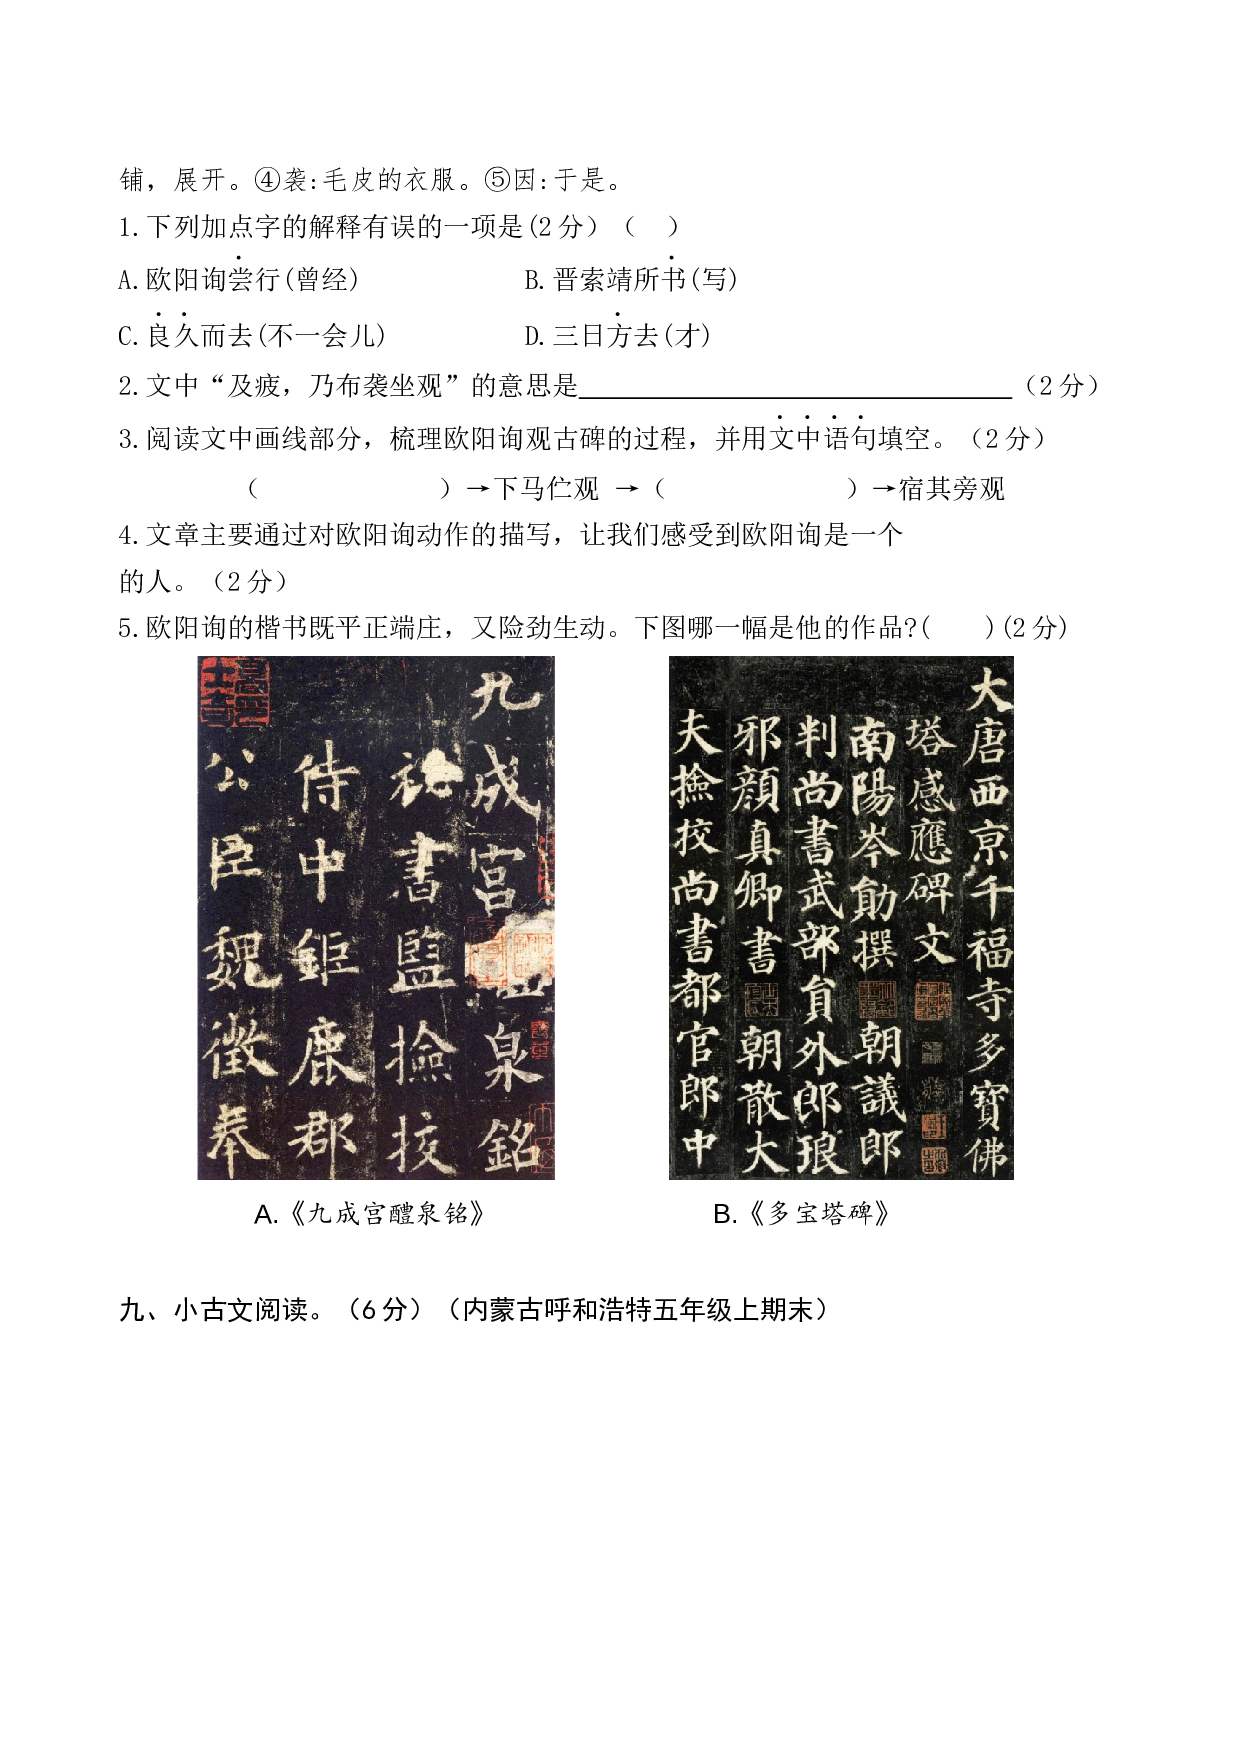 铺，展开。④袭:毛皮的衣服。⑤因:于是。
1.下列加点字的解释有误的一项是(2分)（ ）
A.欧阳询尝行(曾经) B.晋索靖所书(写)
C.良久而去(不一会儿) D.三日方去(才)
2.文中“及疲，乃布袭坐观”的意思是________________（2分）
3.阅读文中画线部分，梳理欧阳询观古碑的过程，并用文中语句填空。（2分）
（ ）→下马伫观 →（ ）→宿其旁观
4.文章主要通过对欧阳询动作的描写，让我们感受到欧阳询是一个
的人。（2分）
5.欧阳询的楷书既平正端庄，又险劲生动。下图哪一幅是他的作品?( )(2分)
九成宫泉銘
秘書監撿挍
侍中鉅鹿郡
公臣魏徵奉
大唐西京千福寺多寶佛
塔感應碑文
南陽岑勛撰朝議郎
判尚書武部員外郎琅
邪顏真卿書朝散大
夫撿挍尚書都官郎中
A.《九成宫醴泉铭》 B.《多宝塔碑》
九、小古文阅读。（6分）（内蒙古呼和浩特五年级上期末）